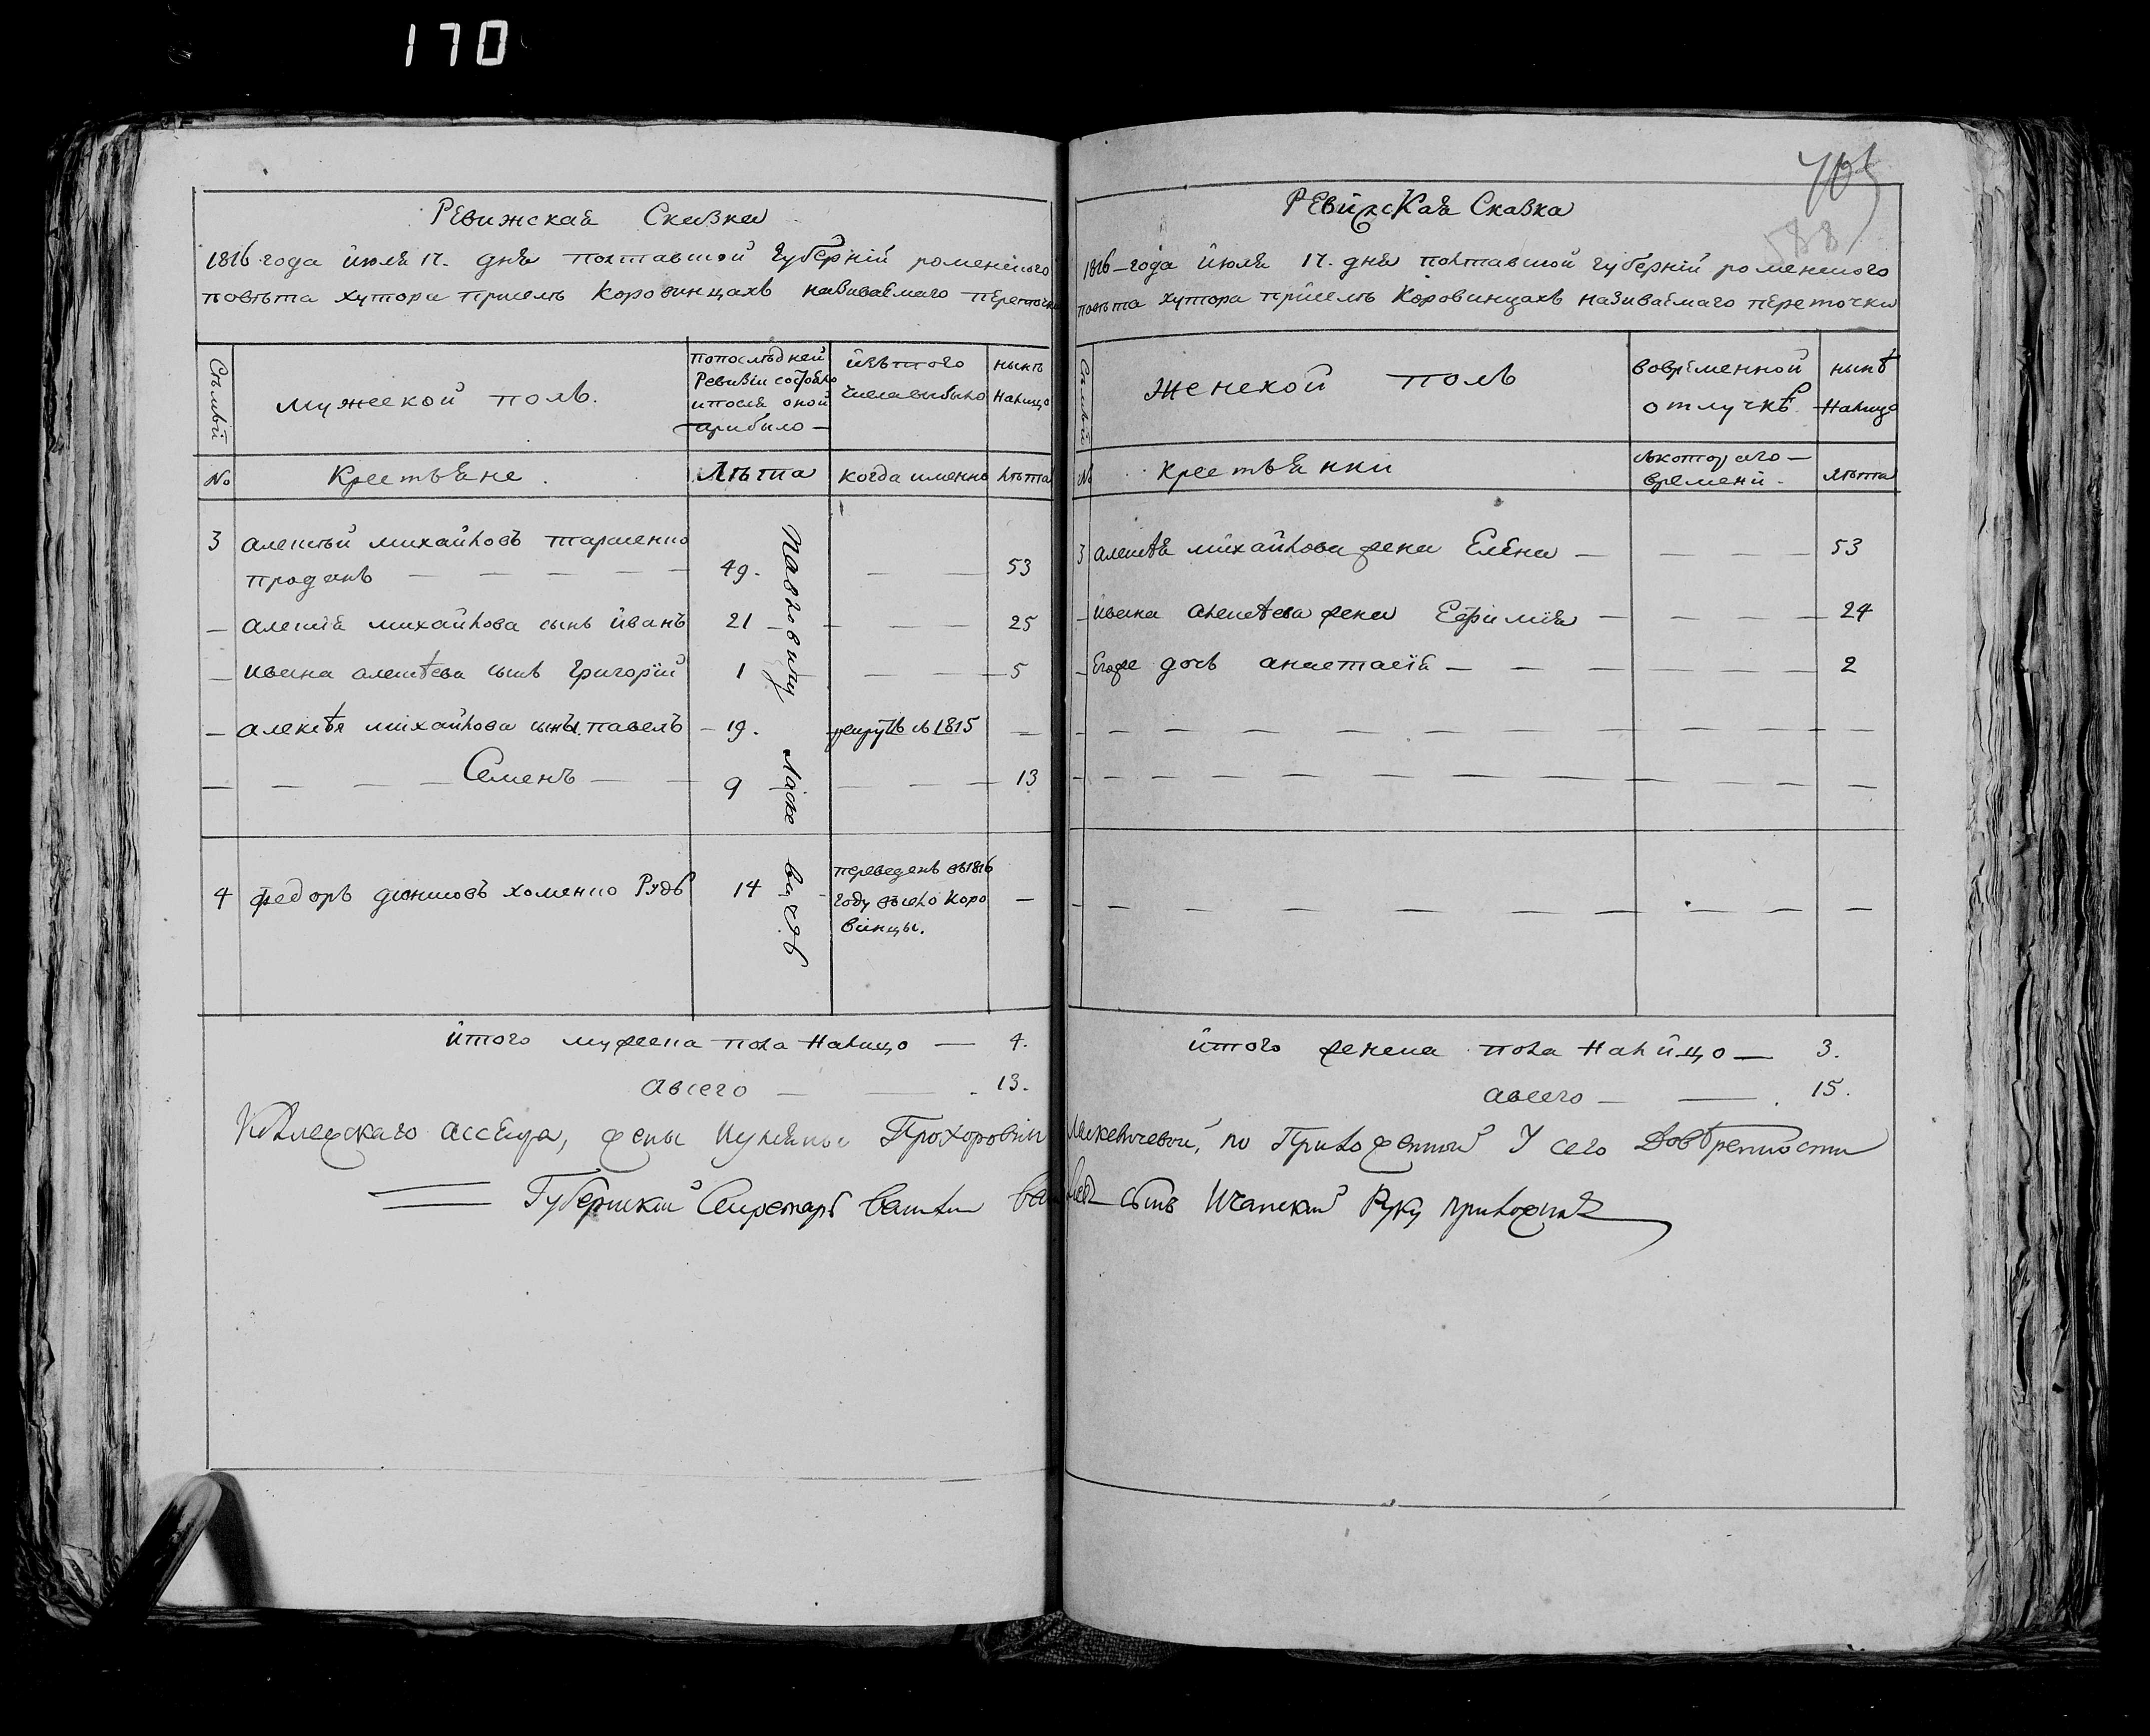 170
Ревижская Сказка
1816 года июля 17. дня полтавской губернїй роменского
повѣта хутора приселѣ Коровинцахъ називаемаго переточки
Сѣмьи
мужеской полъ.
попослѣдней
Ревизїи состояло
ипосля оной
прибило —
изътого
числавыбыло
нынѣ
налицо
№
крестьяне.
Лѣта
когда именно
лѣта
3 алексѣй михайловъ тарасенко
проданъ — — — — — 49. — — 53
— алексѣя михайлова сынъ иванъ 21 — — — 25
— ивана алексѣева сынъ григорїй 1 — — — 5
— алексѣя михайлова сынъ павелъ — 19. рекрутъ въ 1815 —
— — — — Семенъ — — 9 — — 13
Павловичу Ласке вичъ
4 федоръ хоменко 14
переведенъ въ1816
году въсело Коро
винцы. —
итого мужеска пола налицо — 4.
авсего — — 13.
705
588
РЕвижская Сказка
1816 — года июля 17. дня полтавской губернїй роменского
повѣта хутора приселѣ Коровинцахъ називаемаго переточки
Сѣмьи
женской полъ
вовременной
отлучкѣ.
нынѣ
налицо
№
крестьянки
съкотораго —
времени.
лѣта
3 алексѣя михайлова жена Елена — — — — 53
— ивана алексѣева жена Ефимия — — — — 24
— Егоже дочь анастасїя — — — — — 2
итого женска пола налицо — 3.
авсего — — 15.
Колежскаго ассесора, жены Прохоровни по Приложенной У сего Довѣренности
Губернский Секретарь сынъ Руку приложилъ